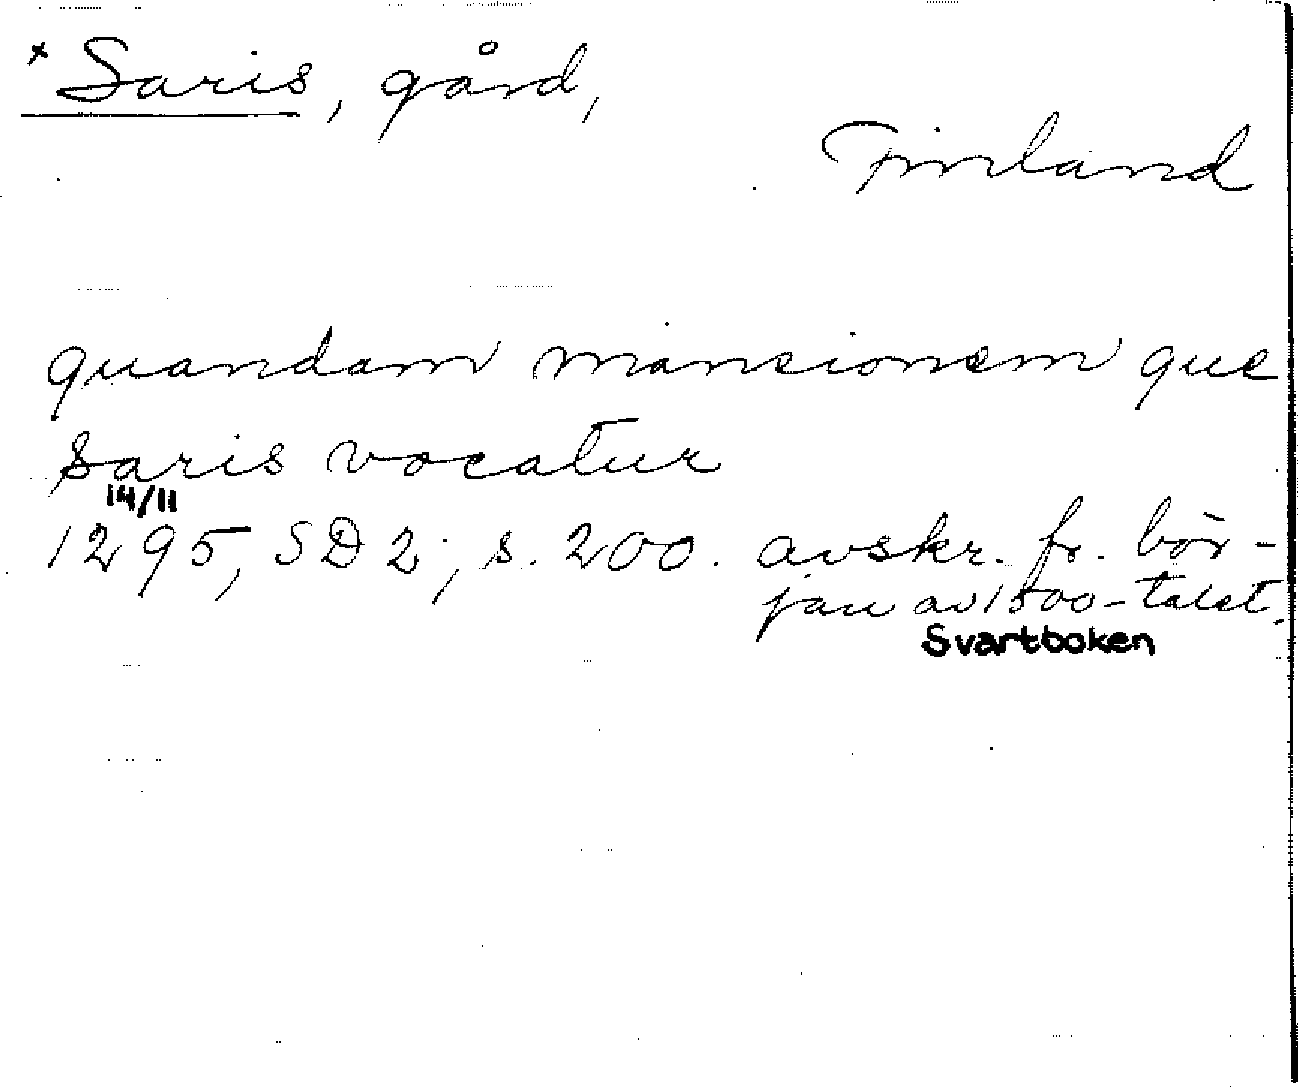 * Saris, gård,
Finland
quandam mansionem que
saris vocatur
14/11
1295, SD 2, s. 200. avskr. fr. bör-
jan av 1500-talet.
Svartboken